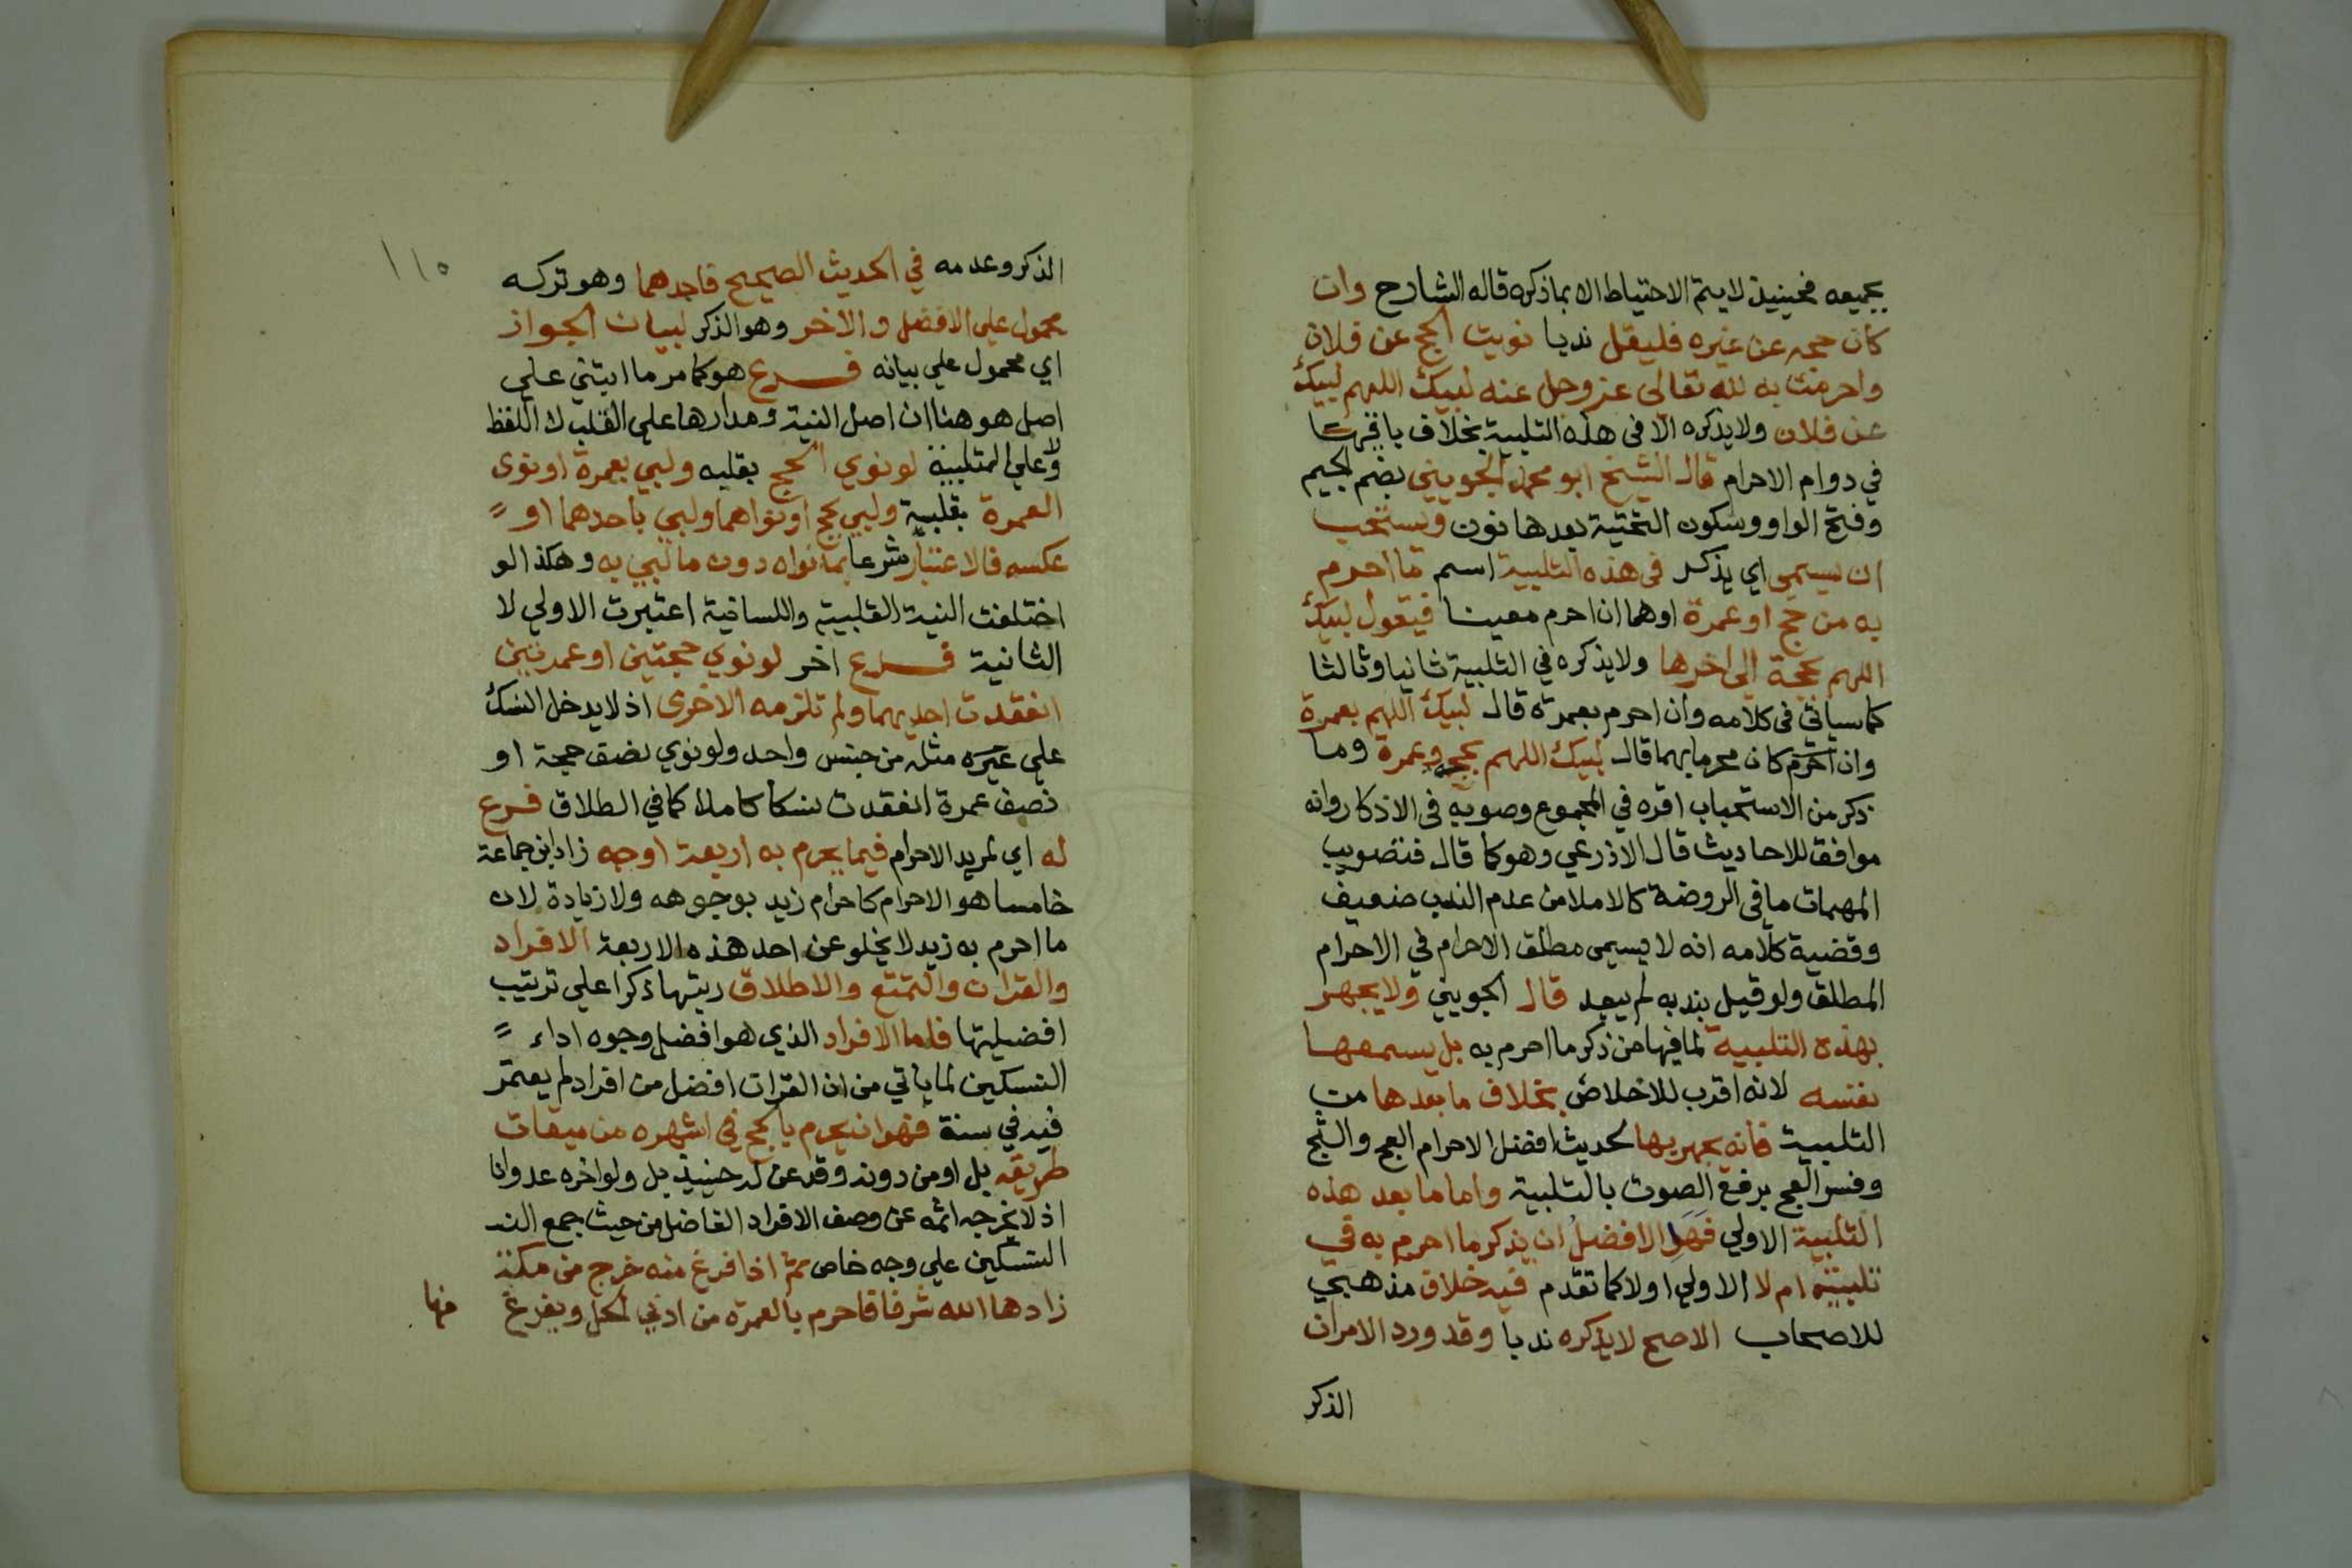 بجميعه فحينيذ لا يتم الاحتياط الا بما ذكره قاله الشارح وان
كان حجه عن غيره فليقل ندبا نويت الحج عن فلان
واحرمت به لله تعالى عز وجل عنه لبيك اللهم لبيك
عن فلان ولا يذكره الا في هذه التلبية بخلاف باقيها
في دوام الاحرام قال الشيخ ابو محمد الجويني بضم الجيم
وفتح الواو وسكون التحتية بعدها نون ويستحب
ان يسمي اي يذكر في هذه التلبية اسم ما احرم
به من حج او عمرة اوهما ان احرم معينا فيقول لبيك
اللهم بحجة الى اخرها ولا يذكره في التلبية ثانيا وثالثا
كما سياتي في كلامه وان احرم بعمرة قال لبيك اللهم بعمرة
وان احرم كان محرما بهما قال لبيك اللهم بحج وعمرة وما
ذكر من الاستحباب اقره في المجموع وصوبه في الاذكار وانه
موافق للاحاديث قال الاذرعي وهو كما قال فتصويب
المهمات ما في الروضة كالاملا من عدم الندب ضعيف
وقضية كلامه انه لا يسمى مطلق الاحرام في الاحرام
المطلق ولو قيل بندبه لم يبعد قال الجويني ولا يجهر
بهذه التلبية لما فيها من ذكر ما احرم به بل يسمعها
نفسه لانه اقرب للاخلاص بخلاف ما بعدها من
التلبية فانه يجهر بها لحديث افضل الاحرام العج والثج
وفسر العج برفع الصوت بالتلبية واما ما بعد هذه
التلبية الاولي فهل الافضل ان يذكر ما احرم به في
تلبيته ام لا الاولي اولا كما تقدم فيه خلاف مذهبي
للاصحاب الاصح لا يذكره ندبا وقد ورد الامران
الذكر
١١٥
الذكر وعدمه في الحديث الصحيح فاحدهما وهو تركه
محمول على الافضل والاخر وهو الذكر لبيان الجواز
اي محمول علي بيانه فرع هو كما مر ما ابتني علي
اصل هو هنا ان اصل النية ومدارها على القلب لا اللفظ
ولا على التلبية لو نوي الحج بقلبه ولبي بعمرة او نوى
العمرة بقلبه ولبي بحج او نواهما ولبي باحدهما او
عكسه فالاعتبار شرعا بما نواه دون ما لبي به وهكذا لو
اختلفت النية القلبية واللسانية اعتبرت الاولي لا
الثانية فرع اخر لو نوي حجتين او عمرتين
انعقدت احديهما ولم تلزمه الاخرى اذ لا يدخل النسك
علي غيره مثله من جنس واحد ولو نوي نصف حجة او
نصف عمرة انعقدت نسكا كاملا كما في الطلاق فرع
له اي لمريد الاحرام فيما يحرم به اربعة اوجه زاد ابن جماعة
خامسا هو الاحرام كاحرام زيد بوجوهه ولا زيادة لان
ما احرم به زيد لا يخلو عن احد هذه الاربعة الافراد
والقران والتمتع والاطلاق رتبها ذكرا علي ترتيب
افضليتها فاما الافراد الذي هو افضل وجوه اداء
النسكين لما ياتي من ان القران افضل من افراد لم يعتمر
فيه في سنة فهو ان يحرم بالحج في اشهره من ميقات
طريقه بل او من دونه وقد عن له حينيذ بل ولو اخره عدوانا
اذ لا يخرجه اثمه عن وصف الافراد الفاضل من حيث جمع الند
النسكين علي وجه خاص ثم اذا فرغ منه خرج من مكة
زادها الله شرفا فاحرم بالعمرة من ادني الحل ويفرغ
منها